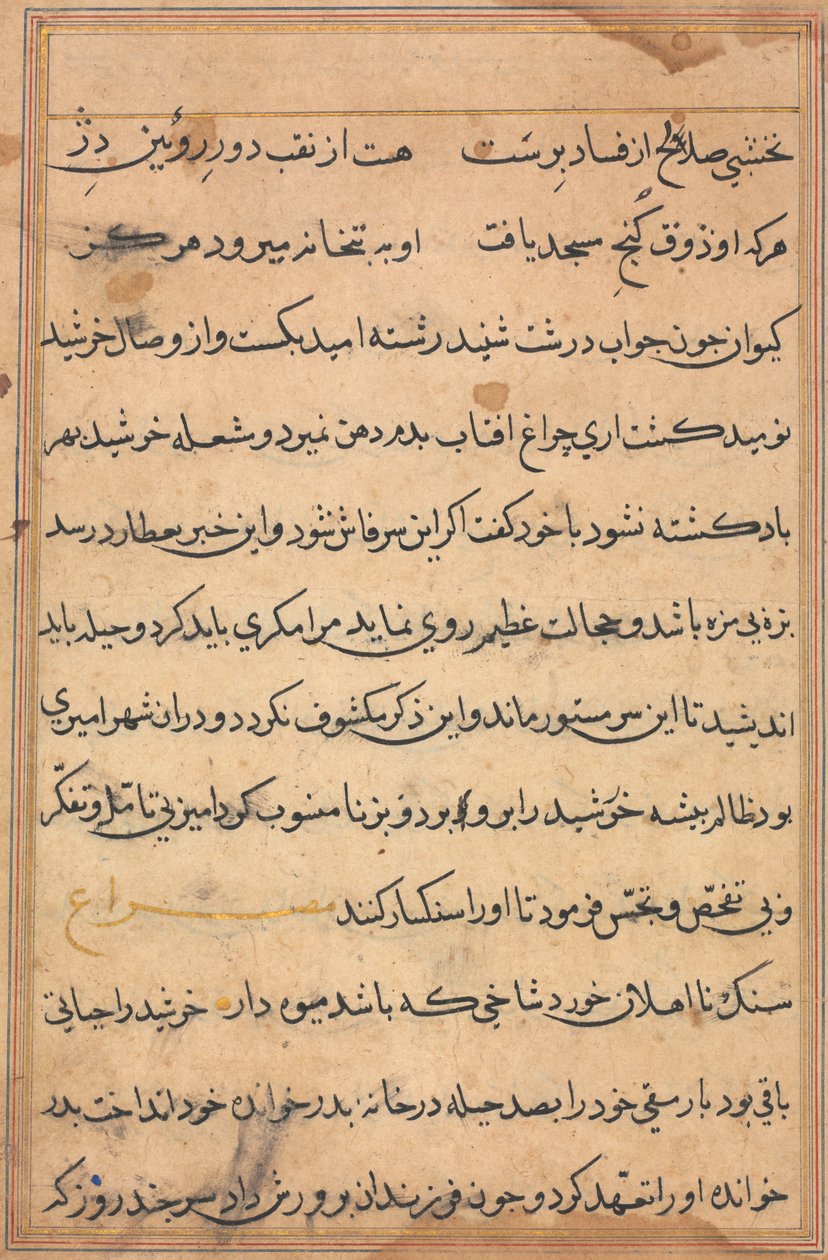 نخشبي صلاح از فساد برست هست از نقب دور روئين دژ
هركه او ذوق كنج مسجد يافت او به بتخانه ميرود هركز
كيوان جون جواب درشت شنيد رشته اميد بكست واز وصال خرشيد
نوميد كشت اري چراغ افتاب بدم دهن نميرد و مشعله خورشيد بهر
باد كشته نشود با خود كفت اكر اين سر فاش شود واين خبر بعطارد رسد
بزۀ بي مزه باشد و خجالت عظيم روي نمايد مرا مكري بايد كرد و حيله بايد
انديشيد تا اين سر مستور ماند و اين ذكر مكشوف نكردد و دران شهر اميري
بود ظالم بيشه خرشيد را برو برد و بزنا منسوب كرد امير بي تامّل و تفكّر
و بي تفحّص و تجسّس فرمود تا او را سنكسار كنند مصراع
سنك نا اهلان خورد شاخي كه باشد ميوه دار خرشيد را حياتي
باقي بود بار مقي خود را بصد حيله در خانۀ بدر خوانده خود انداخت بدر
خوانده او را تعهّد كرد و جون فرزندان برورش داد سر جند روز كه